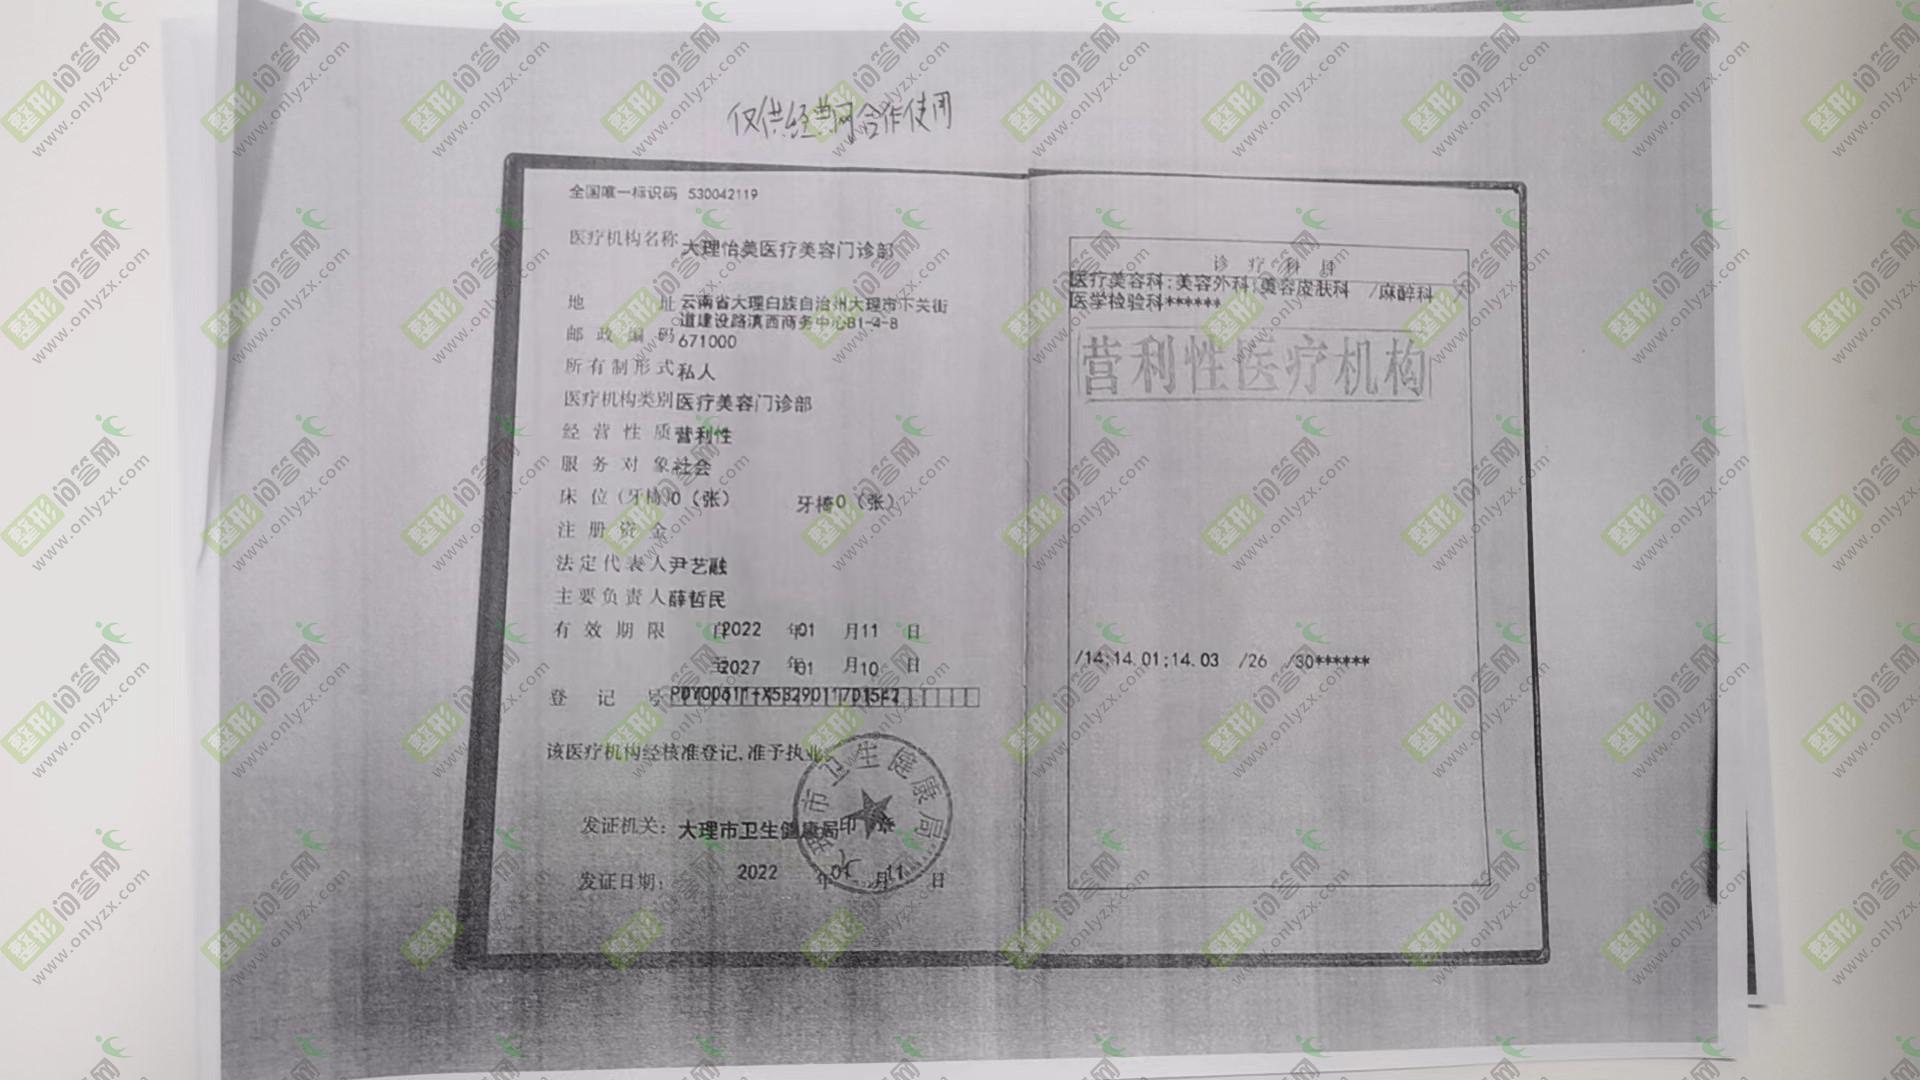 仅供经典网合作使用
全国唯一标识码 530042119
医疗机构名称 大理怡美医疗美容门诊部
地 址 云南省大理白族自治州大理市下关街
道建设路滇西商务中心B1-4-8
邮政编码 671000
所有制形式 私人
医疗机构类别 医疗美容门诊部
经营性质 营利性
服务对象 社会
床位(牙椅) 0(张) 牙椅0(张)
注册资金
法定代表人 尹艺融
主要负责人 薛哲民
有效期限 自2022年01月11日
至2027年01月10日
登记号
该医疗机构经核准登记,准予执业。
发证机关: 大理市卫生健康局印章
发证日期: 2022年01月11日
大理市卫生健康局
诊疗科目
医疗美容科;美容外科;美容皮肤科 /麻醉科
医学检验科******
营利性医疗机构
/14;14.01;14.03 /26 /30******
整形问答网
www.onlyzx.com